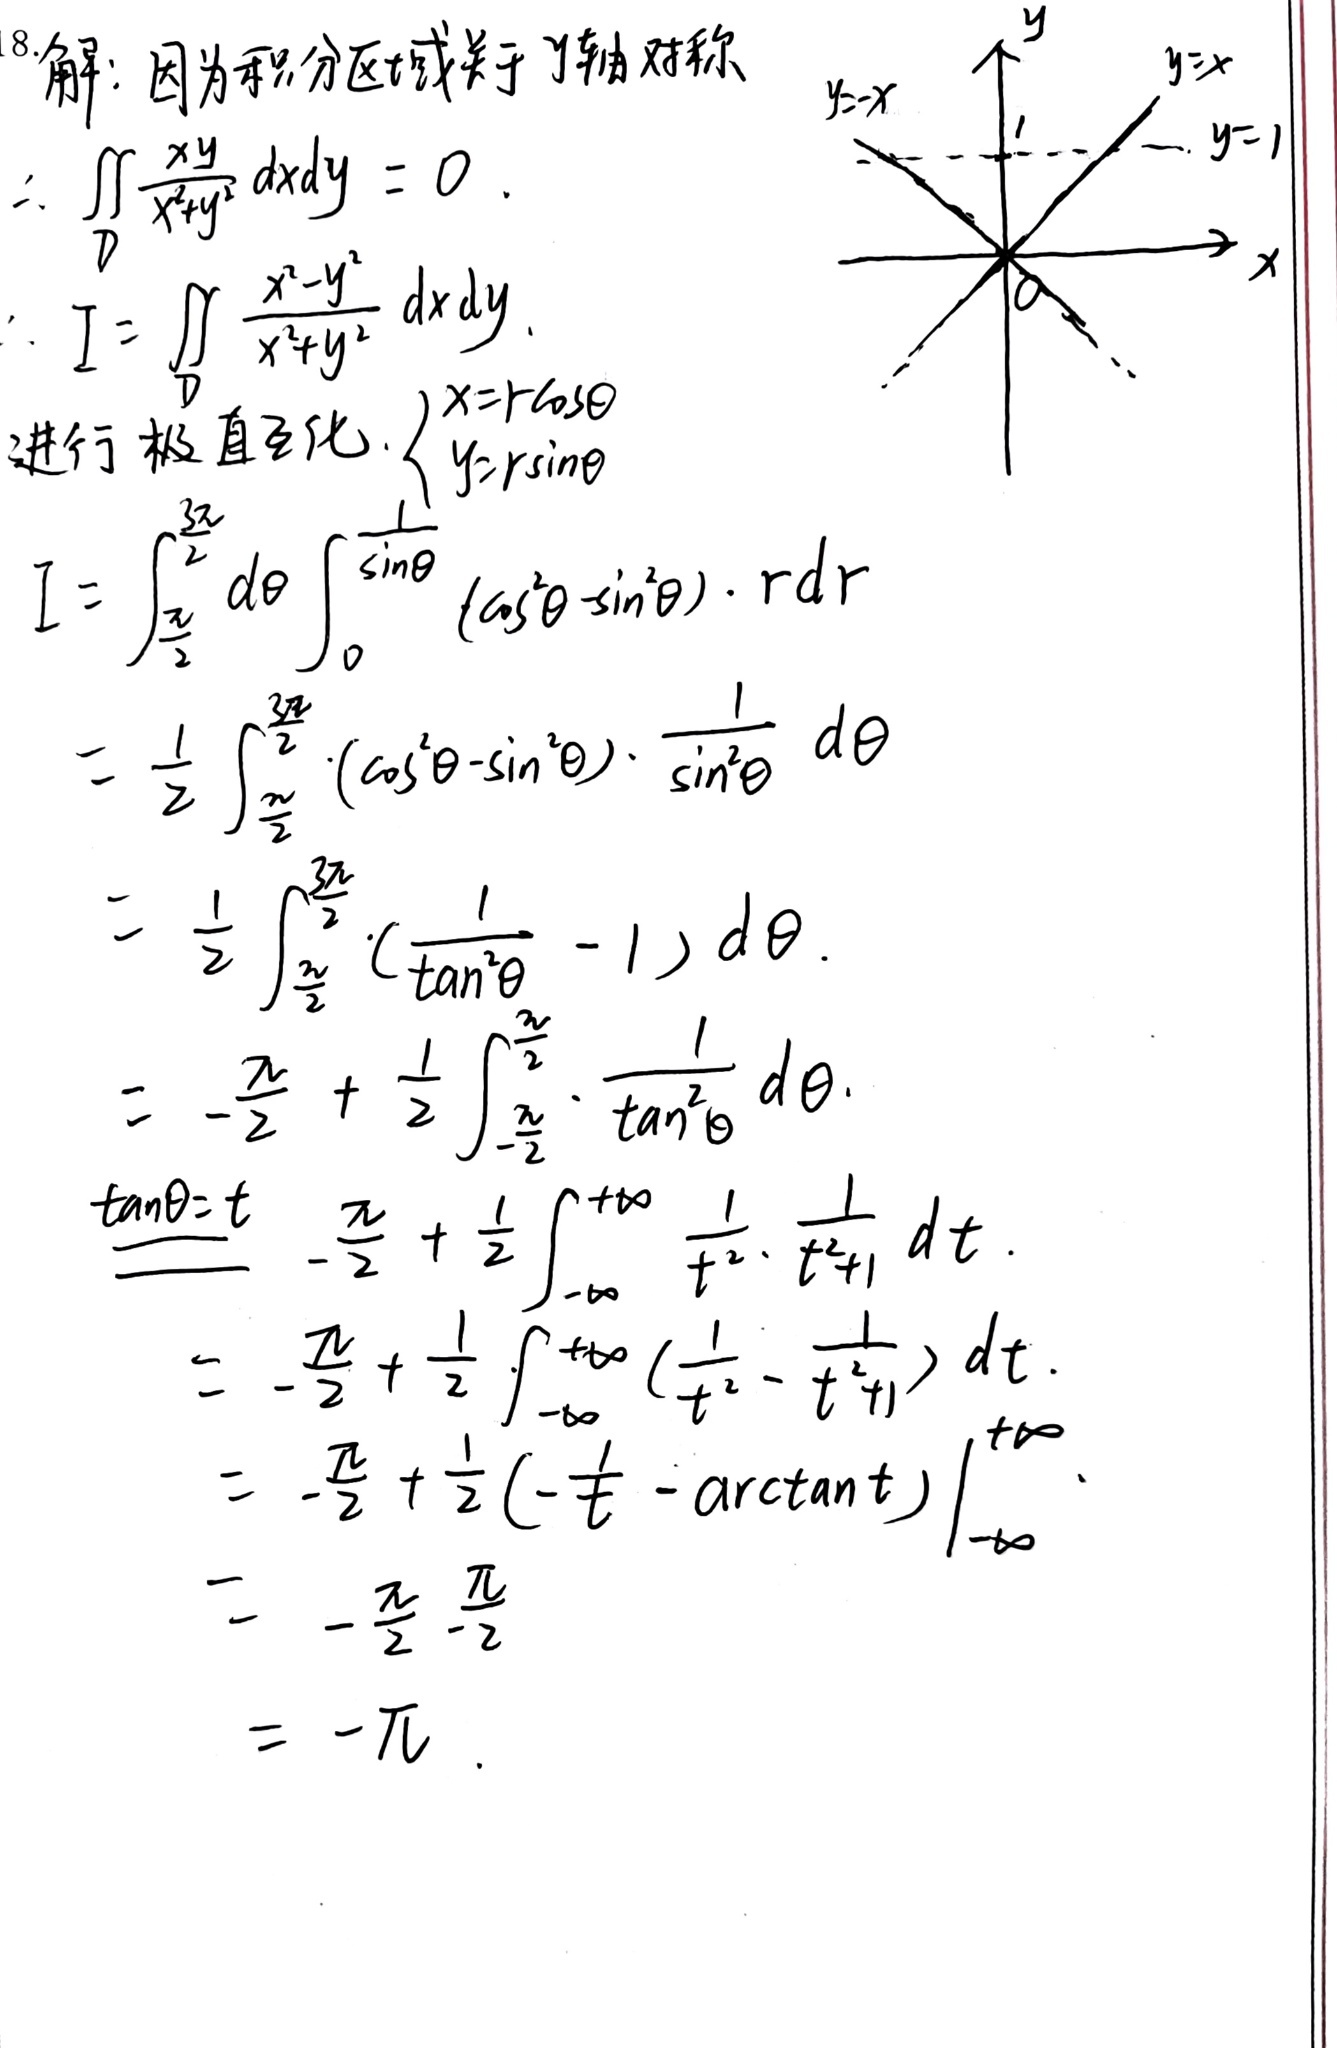 18. 解: 因为积分区域关于y轴对称
∴ ∬_D xy/(x²+y²) dxdy = 0.
∴ I = ∬_D (x²-y²)/(x²+y²) dxdy.
进行极直互化. { x=rcosθ
y=rsinθ
I = ∫_{π/2}^{3π/2} dθ ∫_0^{1/sinθ} (cos²θ-sin²θ)·rdr
= 1/2 ∫_{π/2}^{3π/2} ·(cos²θ-sin²θ)· 1/sin²θ dθ
= 1/2 ∫_{π/2}^{3π/2} ·(1/tan²θ - 1) dθ.
= -π/2 + 1/2 ∫_{-π/2}^{π/2} · 1/tan²θ dθ.
tanθ=t -π/2 + 1/2 ∫_{-∞}^{+∞} 1/t² · 1/(t²+1) dt.
= -π/2 + 1/2 ∫_{-∞}^{+∞} (1/t² - 1/(t²+1)) dt.
= -π/2 + 1/2 (-1/t - arctant) |_{-∞}^{+∞}.
= -π/2 -π/2
= -π.
y
y=-x
y=x
1
y=1
x
0